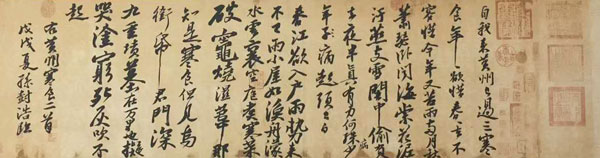 自我来黄州已過三寒
食年々欲惜春去不
容惜今年又苦雨兩月秋
蕭瑟卧聞海棠花泥
汙燕支雪闇中偷負
去夜半真有力何殊少
年子病起頭已白
春江欲入戶雨勢来
不已雨小屋如漁舟濛々
水雲裏空庖煮寒菜
破竈燒濕葦那
知是寒食但見烏
銜帋君門深
九重墳墓在万里也擬
哭塗窮死灰吹不
起
右黄州寒食二首
戊戌夏孫封浩臨